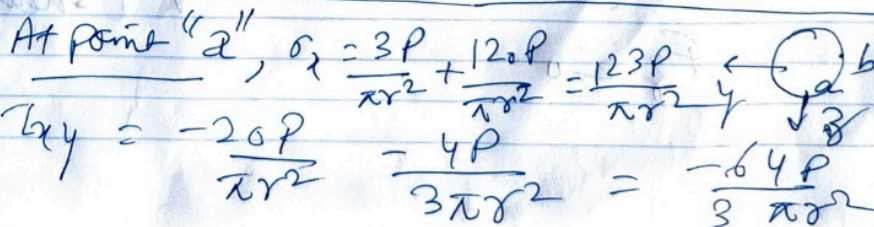 At point "a", σx = 3P/πr² + 120P/πr² = 123P/πr² y a b z
τxy = -20P/πr² - 4P/3πr² = -64P/3πr²